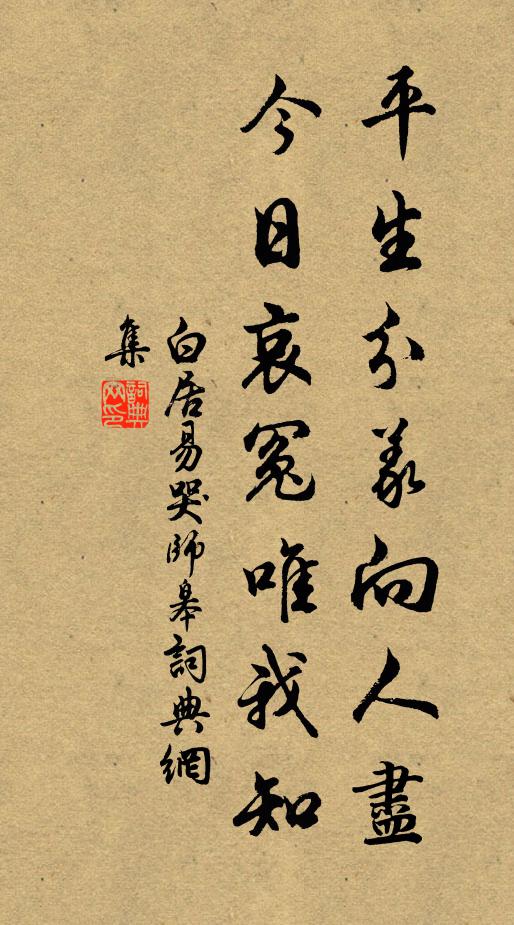 平生分義向人盡
今日哀冤唯我知
白居易哭師皋詞典網
集
詞典网印